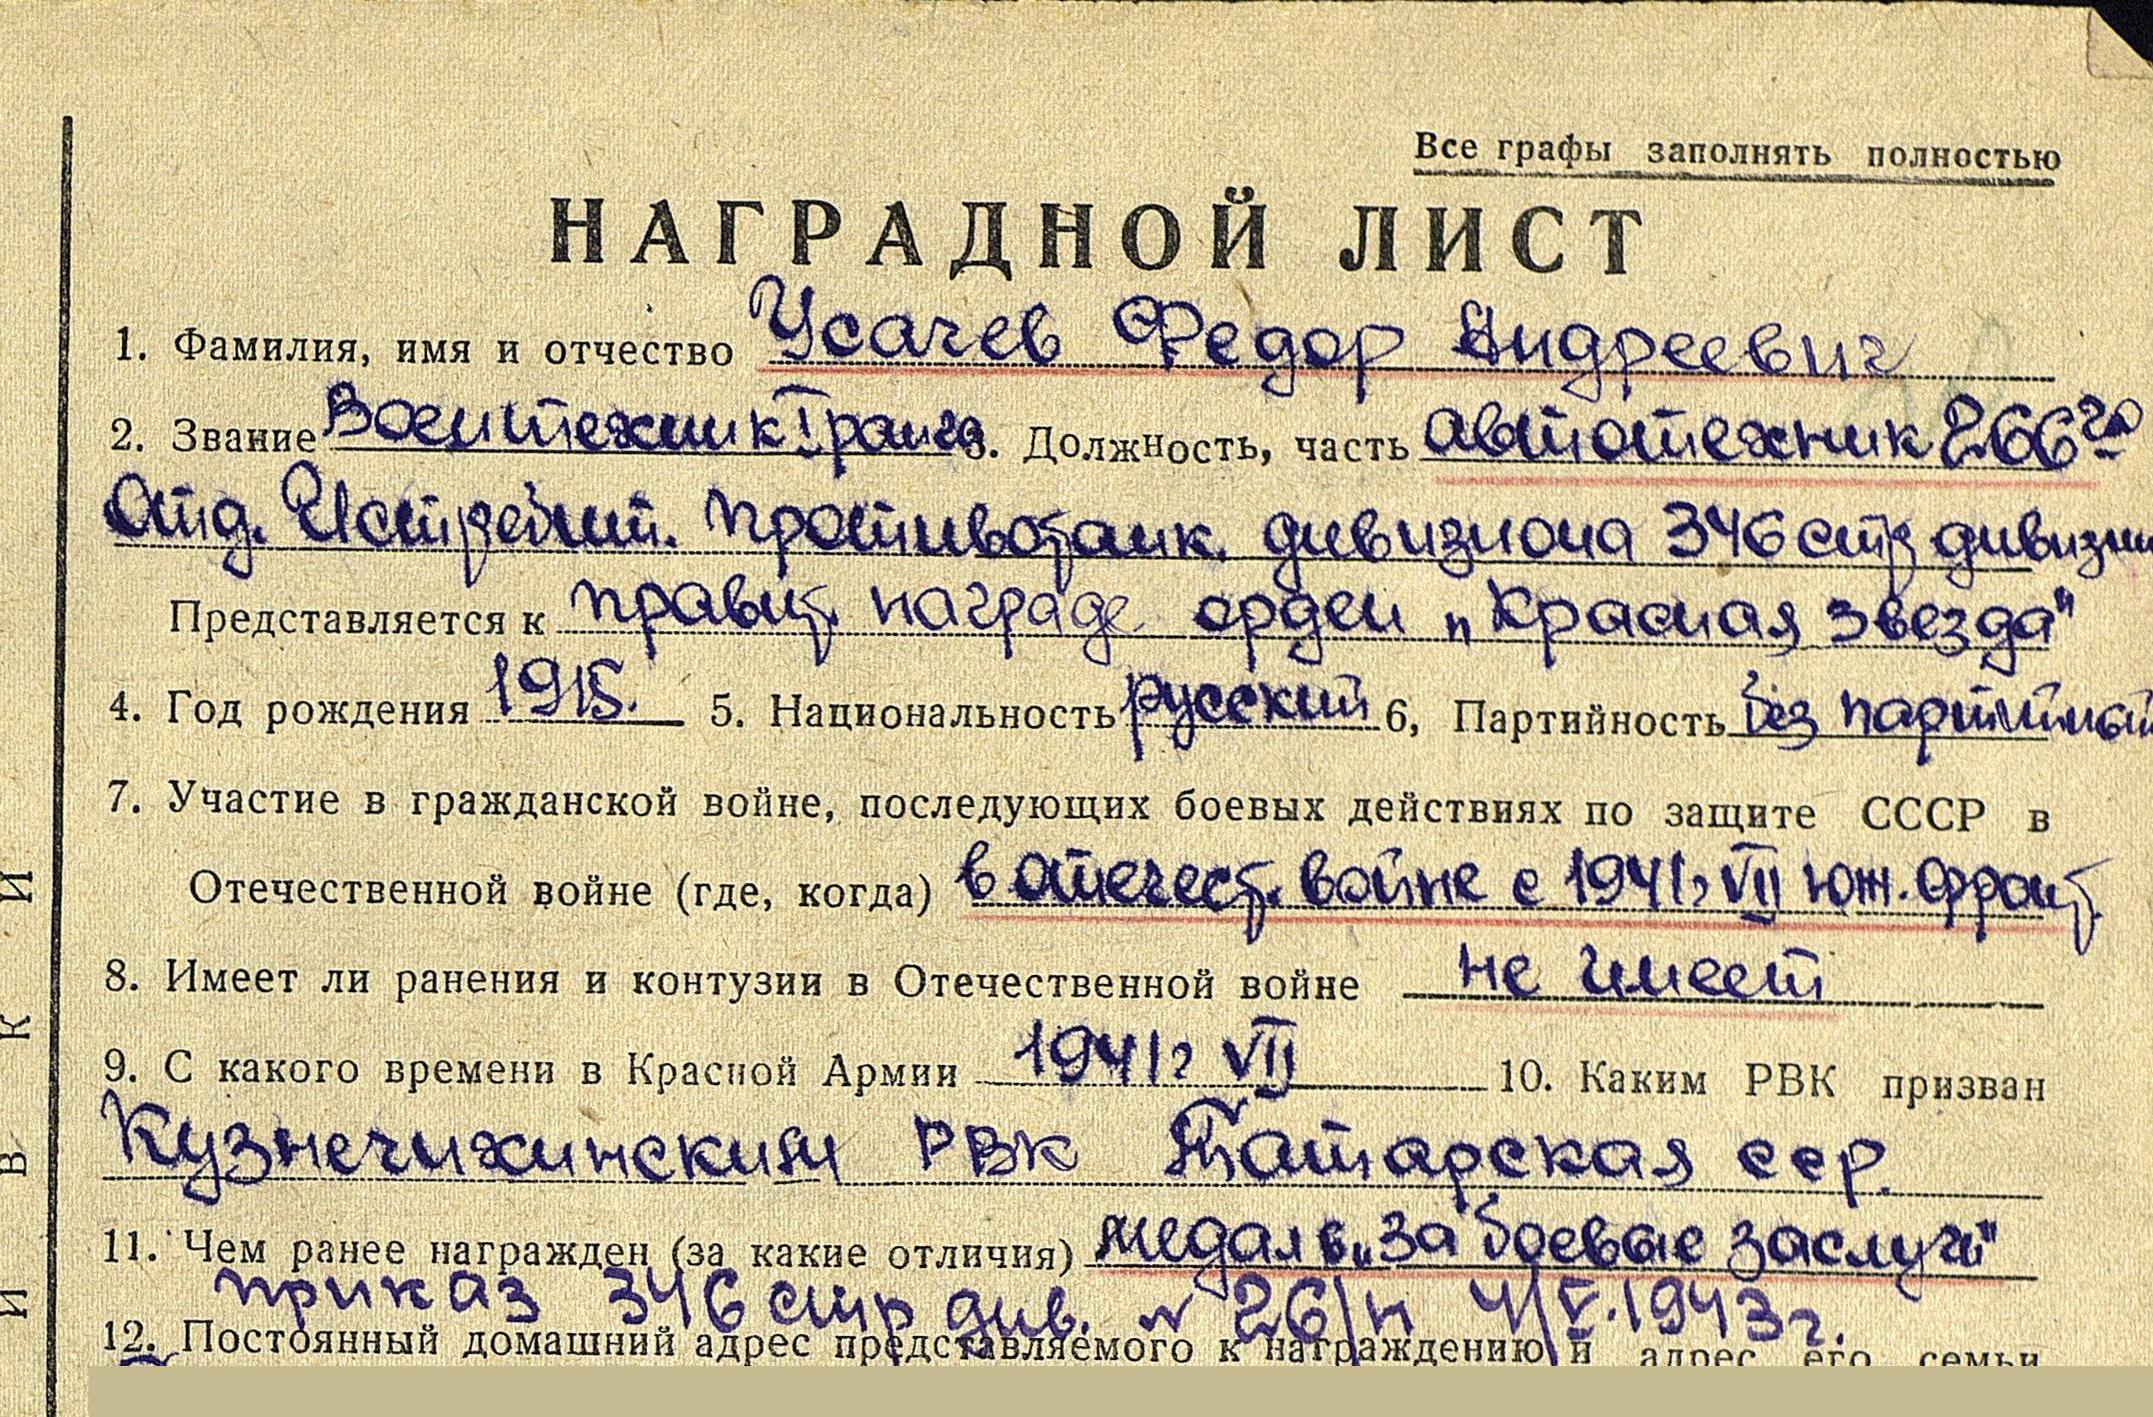 Все графы заполнять полностью
НАГРАДНОЙ ЛИСТ
1. Фамилия, имя и отчество Усачев Федор Андреевич
2. Звание Воентехник I ранга 3. Должность, часть автотехник 266го
Отд. Истребит. противотанк. дивизиона 346 стр дивизии
Представляется к правит. награде орден „Красная звезда"
4. Год рождения 1915. 5. Национальность русский 6, Партийность без партийный
7. Участие в гражданской войне, последующих боевых действиях по защите СССР в
Отечественной войне (где, когда) в отечест. войне с 1941г VII Юж. Фронт.
8. Имеет ли ранения и контузии в Отечественной войне не имеет
9. С какого времени в Красной Армии 1941г VII 10. Каким РВК призван
Кузнечихинским РВК Татарская сср.
11. Чем ранее награжден (за какие отличия) медаль „За боевые заслуги"
приказ 346 стр див. № 26/н 4/V.1943г.
12. Постоянный домашний адрес представляемого к награждению и адрес его семьи
И В К И